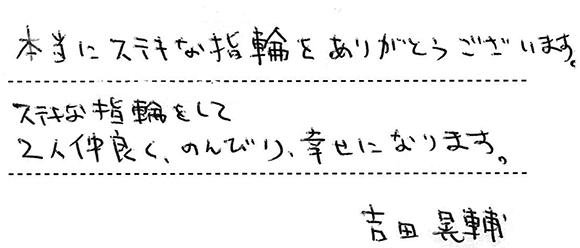 本当にステキな指輪をありがとうございます。
ステキな指輪をして
2人仲良く、のんびり、幸せになります。
吉田 晃輔